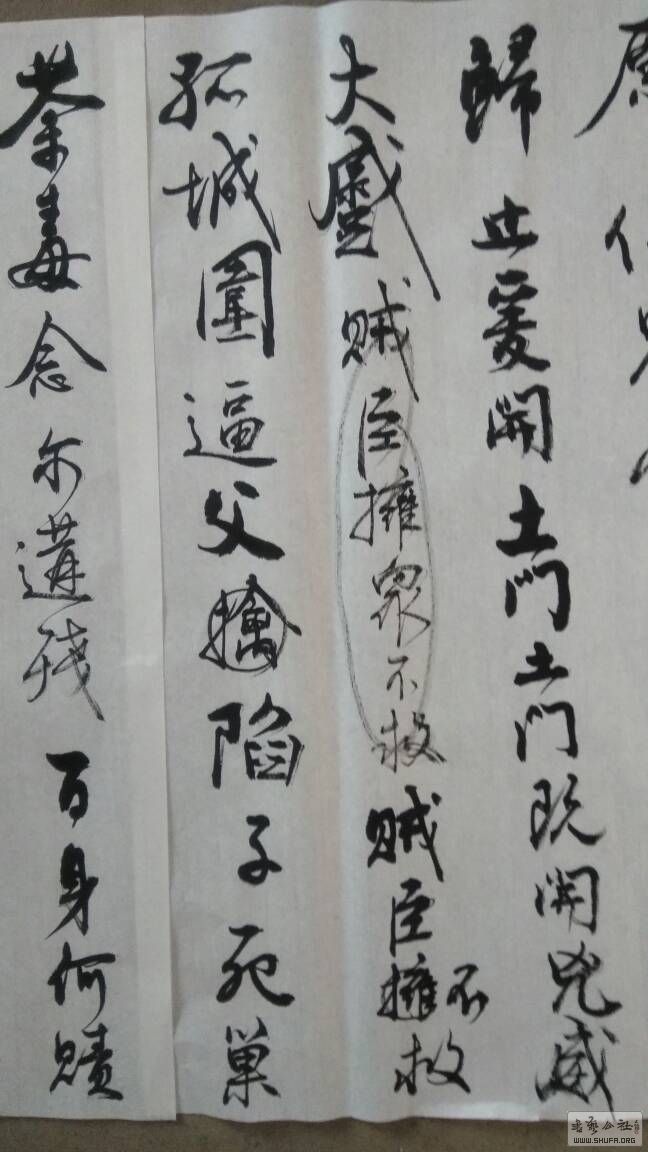 歸止爰開土門土門既開兇威
大蹙賊臣擁衆不救賊臣擁不救
孤城圍逼父擒陷子死巢
荼毒念尔遘残百身何贖
書藝公社
WWW.SHUFA.ORG